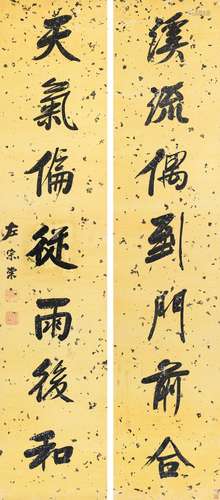 溪流偶到門前合
天氣偏從雨後和
左宗棠